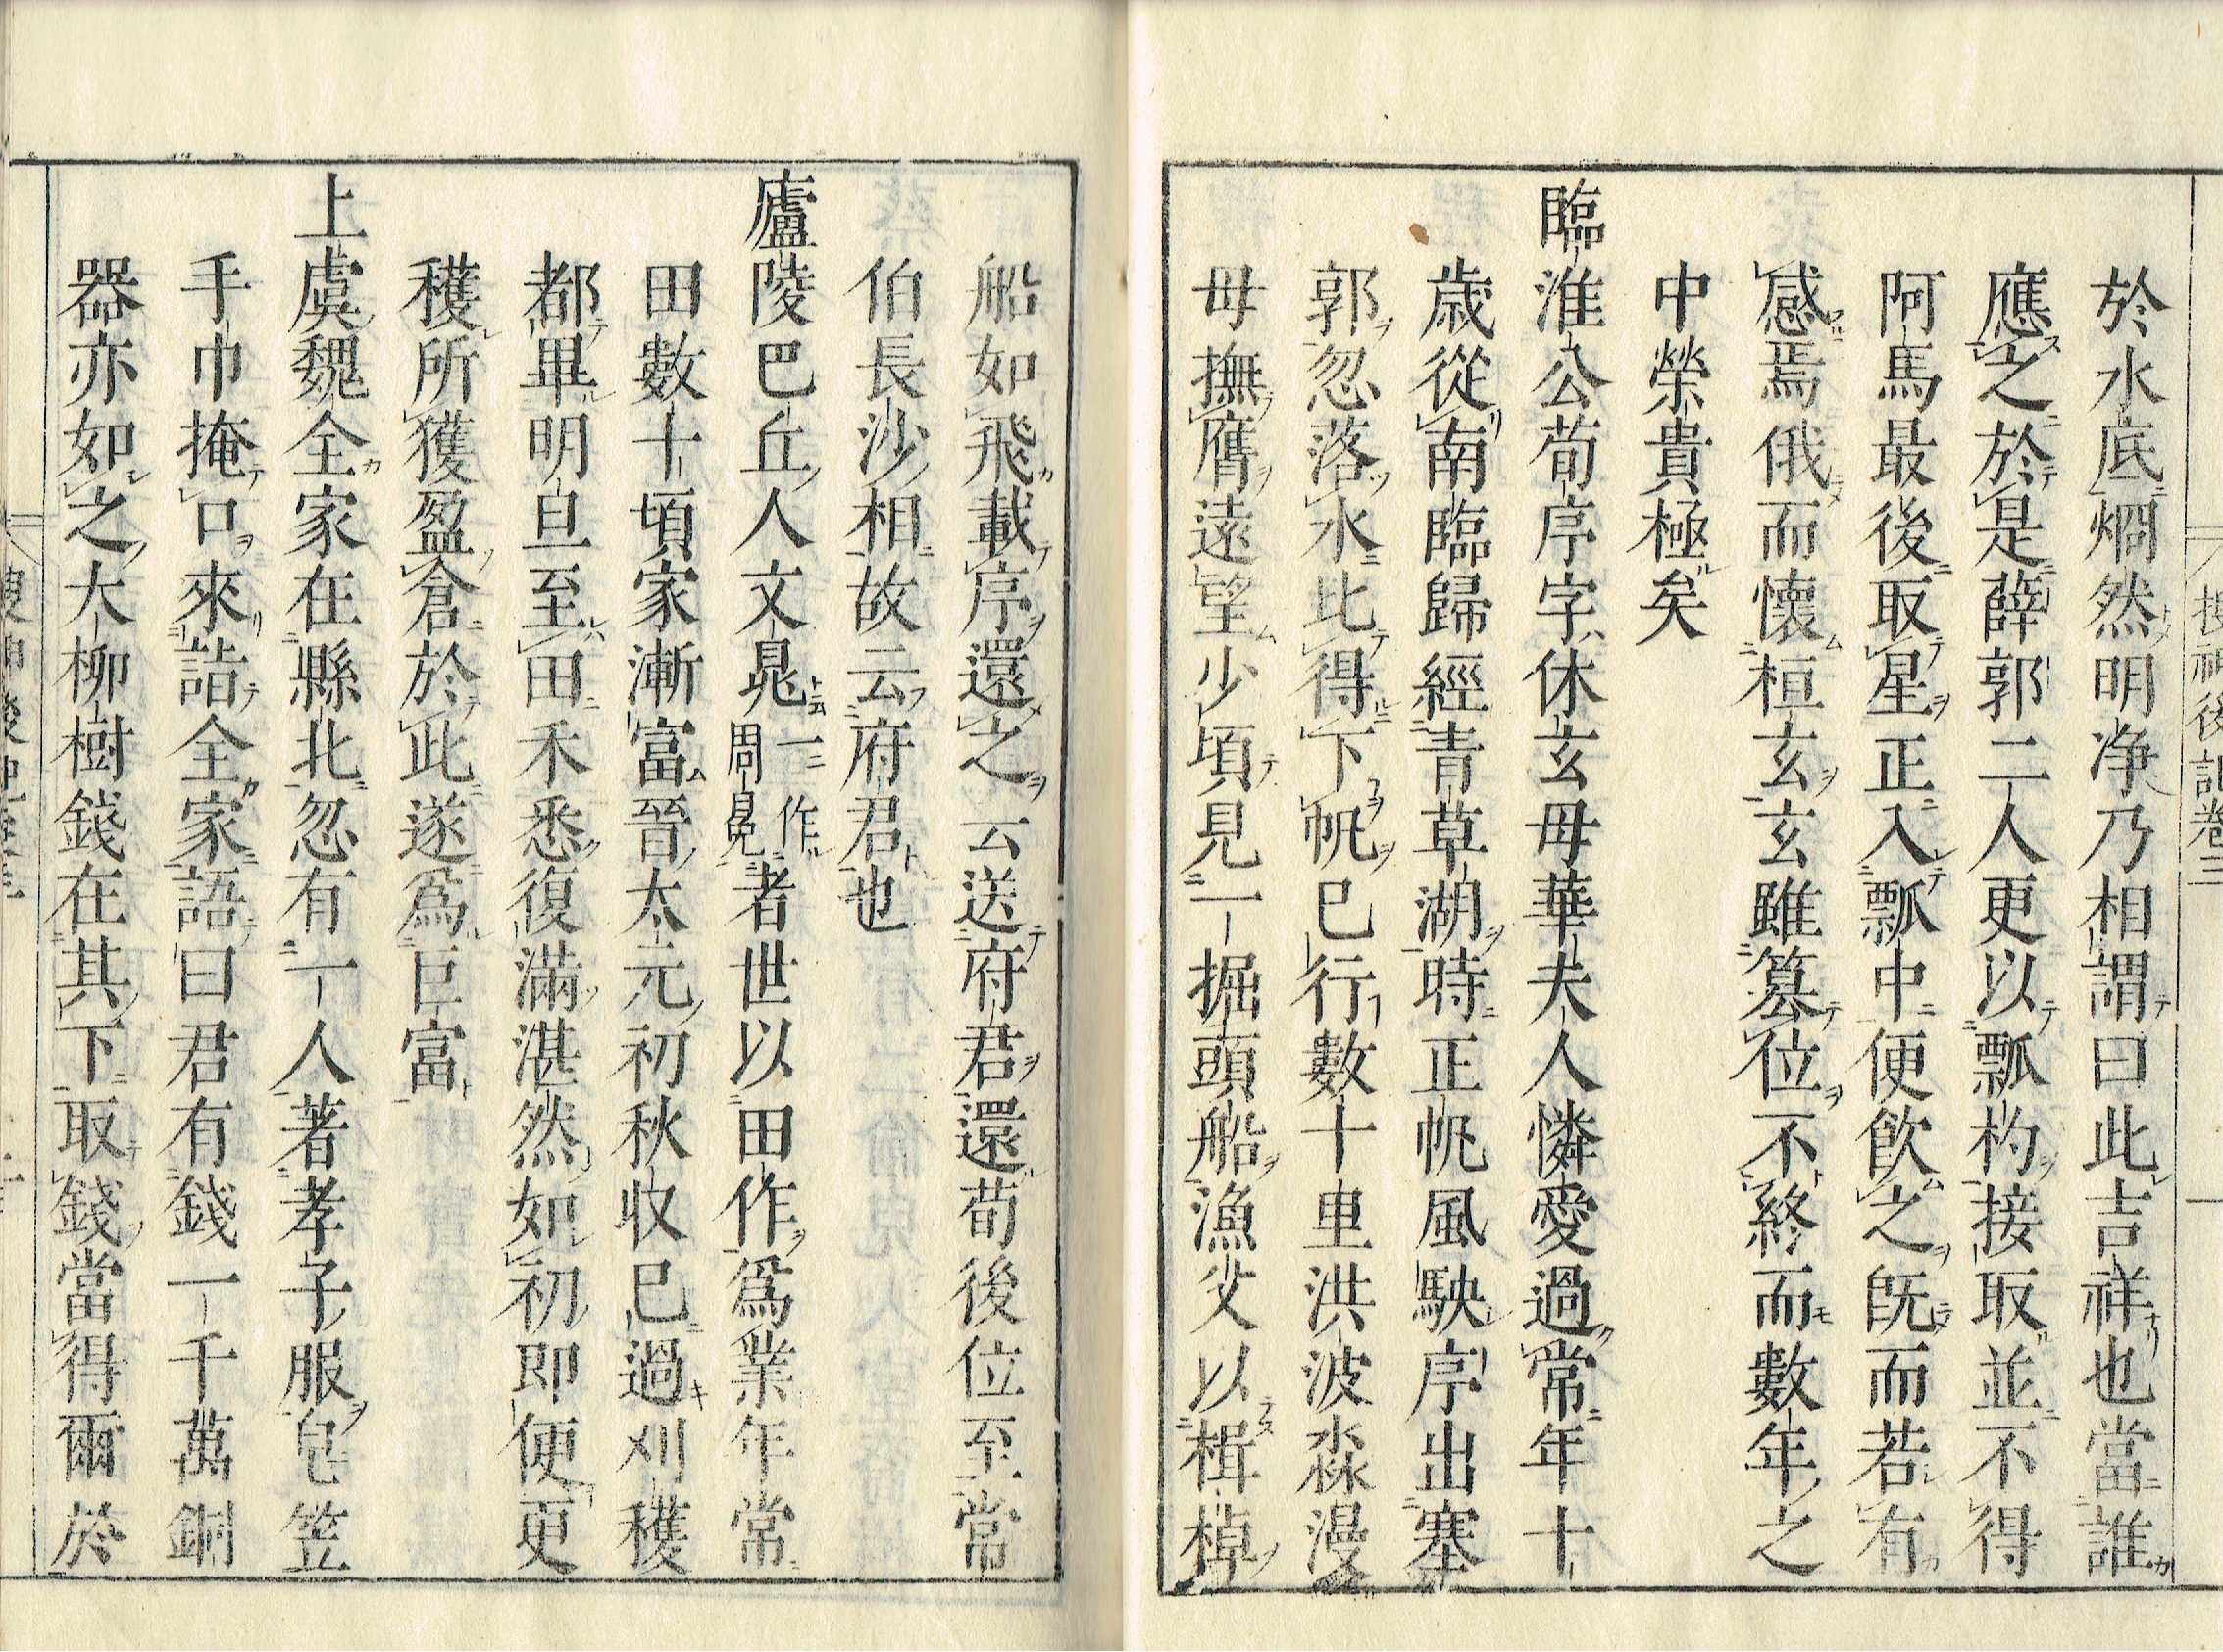 於水底烱然明净乃相謂曰此吉祥也當誰
應之於是薛郭二人更以瓢杓接取並不得
阿馬最後取星正入瓢中便飲之既而若有
感焉俄而懷桓玄玄雖篡位不終而數年之
中榮貴極矣
臨淮公荀序字休玄母華夫人憐愛過常年十
歳從南臨歸經青草湖時正帆風駚序出塞
郭忽落水比得下帆巳行數十里洪波淼漫
母撫膺遠望少頃見一掘頭船漁父以楫棹
船如飛載序還之云送府君還荀後位至常
伯長沙相故云府君也
廬陵巴丘人文晁一作周冕者世以田作爲業年常
田數十頃家漸富晉太元初秋收巳過刈穫
都畢明旦至田禾悉復滿湛然如初即便更
穫所獲盈倉於此遂爲巨富
上虞魏全家在縣北忽有一人著孝子服皂笠
手巾掩口來詣全家語曰君有錢一千萬銅
器亦如之大柳樹錢在其下取錢當得爾於
搜神後記卷三